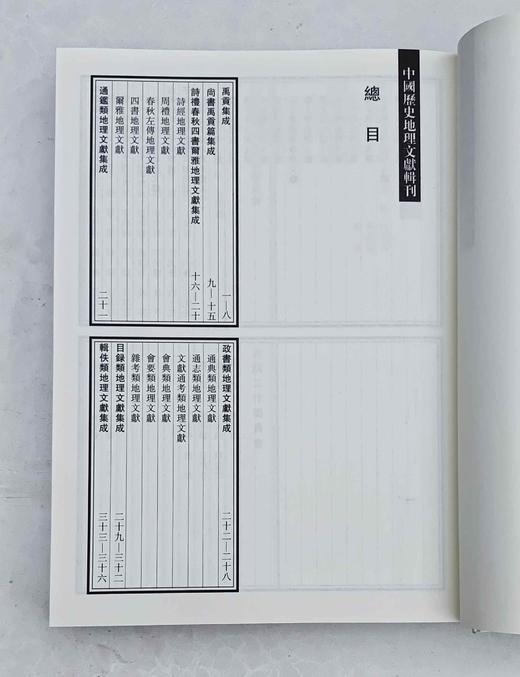 中國歷史地理文獻輯刊
總目
禹貢集成 一—八
尚書禹貢篇集成 九—十五
詩禮春秋四書爾雅地理文獻集成 十六—二十
詩經地理文獻
周禮地理文獻
春秋左傳地理文獻
四書地理文獻
爾雅地理文獻
通鑑類地理文獻集成 二十一
政書類地理文獻集成 二十二—二十八
通典類地理文獻
通志類地理文獻
文獻通考類地理文獻
會典類地理文獻
會要類地理文獻
雜考類地理文獻
目録類地理文獻集成 二十九—三十二
輯佚類地理文獻集成 三十三—三十六